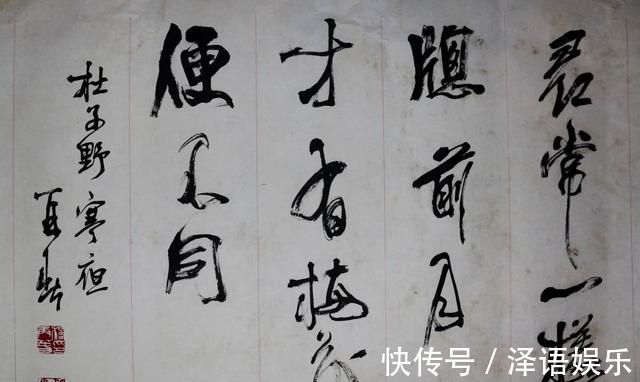 尋常一樣
牕前月
才有梅花
便不同
杜子野寒夜
快传号 / 泽语娱乐